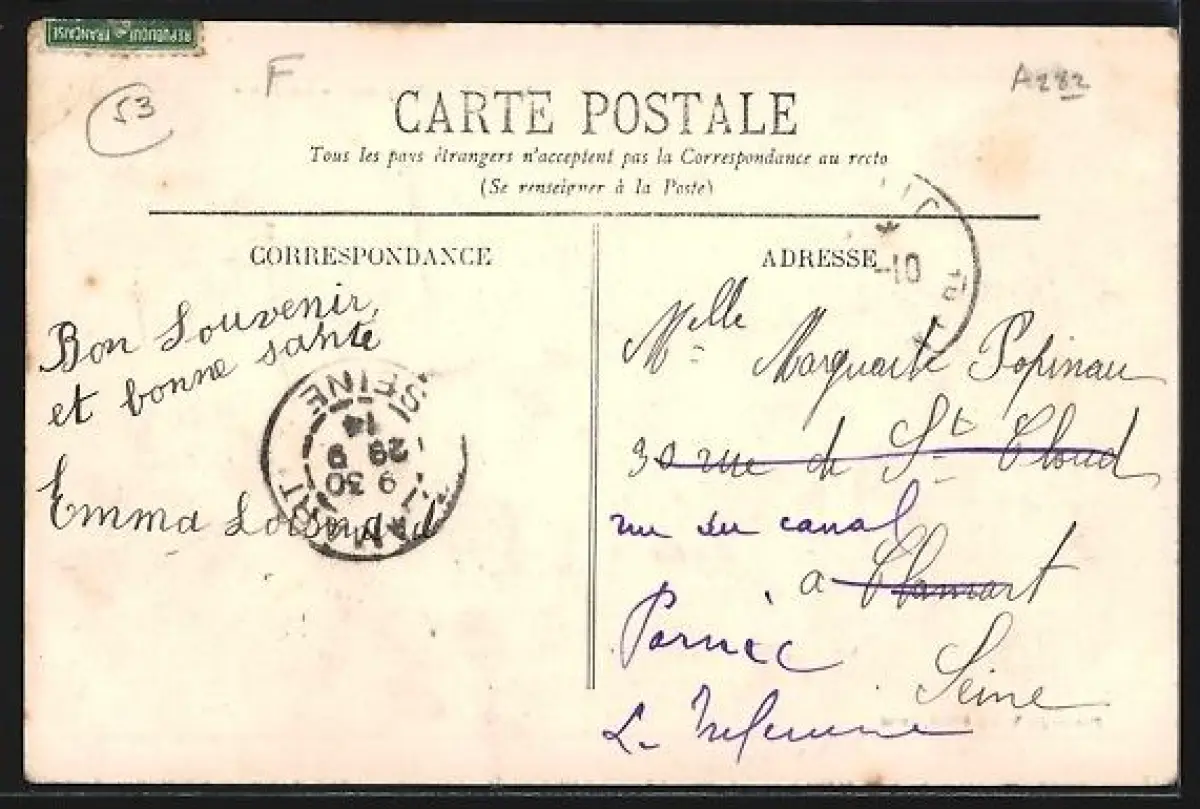 REPUBLIQUE FRANÇAISE
53
F
A282
CARTE POSTALE
Tous les pays étrangers n'acceptent pas la Correspondance au recto
(Se renseigner à la Poste)
CORRESPONDANCE
Bon Souvenir,
et bonne santé
Emma
CLAMART
9 30
29 9
14
SEINE
ADRESSE
-10
Melle Marguerite Popinau
30 rue de St Cloud
rue du canal
a Clamart
Pornic
Seine
L. Inferieure